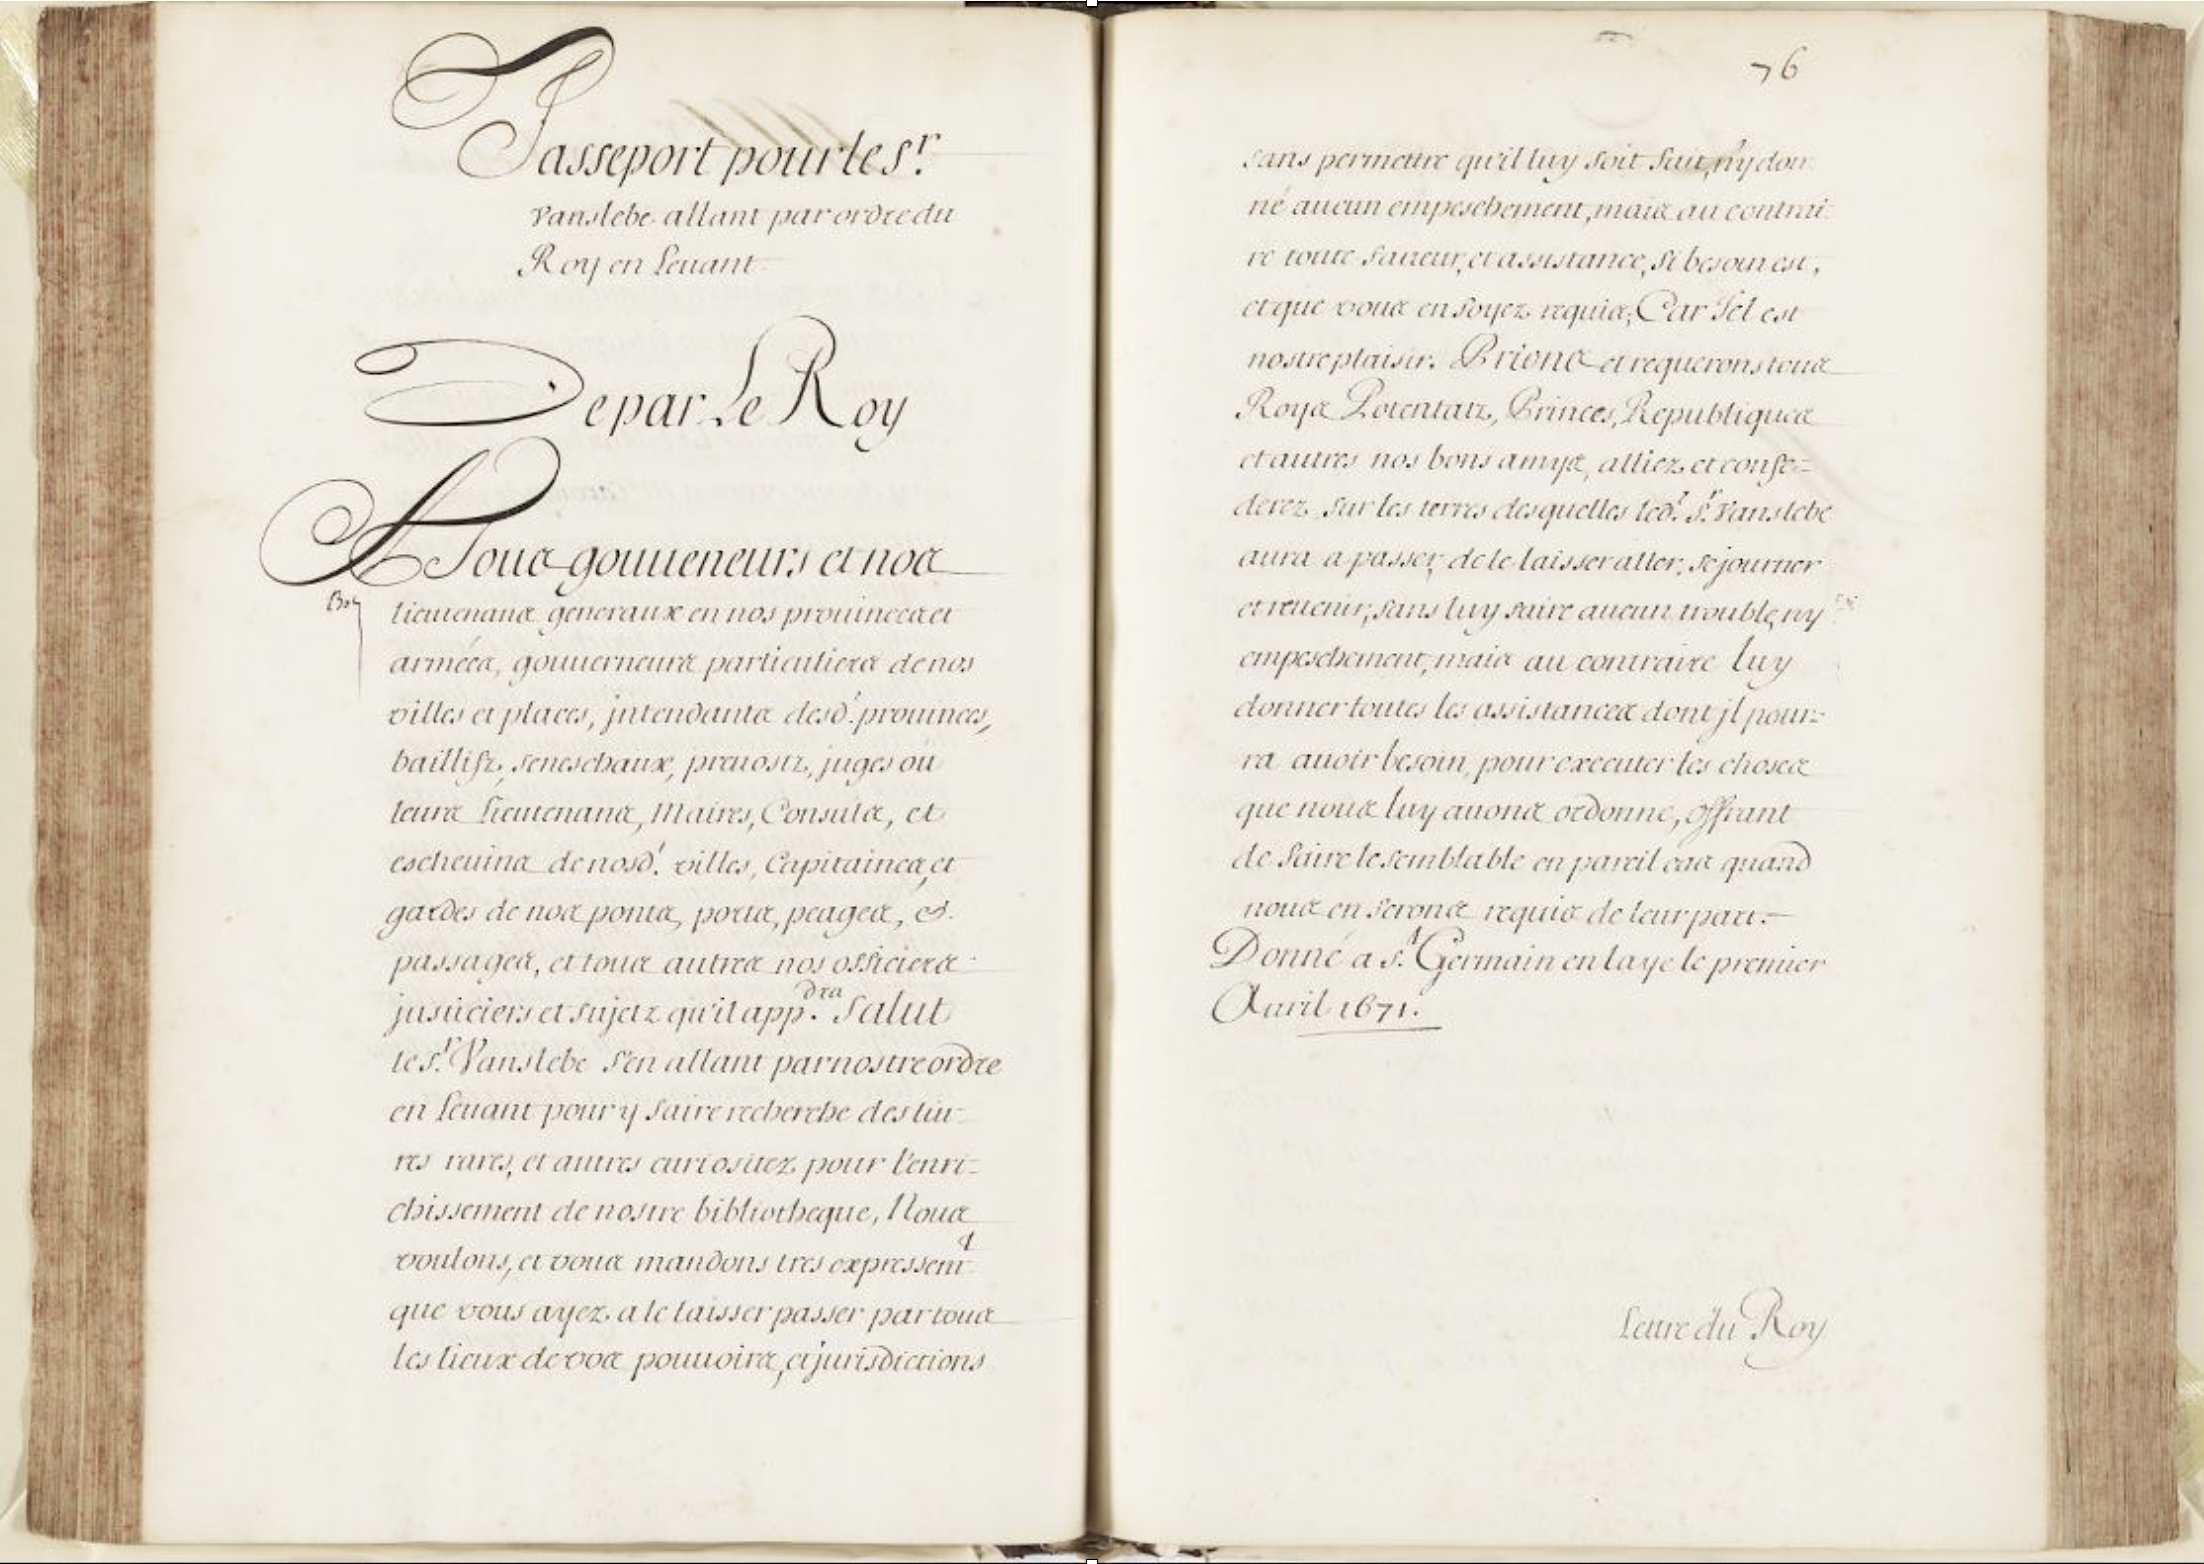 Passeport pour le Sr.
Vanslebe allant par ordre du
Roy en Levant
De par Le Roy
A Tous gouueneurs et nos
Bon
lieutenans generaux en nos prouinces et
armées, gouuerneurs particuliers de nos
villes et places, jntendants desd. prouinces,
baillifz, seneschaux, preuostz, juges ou
leurs Lieutenans, Maires, Consuls, et
escheuins de nosd. villes, Capitaines, et
gardes de nos ponts, ports, peages, et
passages, et tous autres nos officiers
justiciers et sujetz qu'il app.dra Salut
le Sr. Vanslebe s'en allant par nostre ordre
en Leuant pour y faire recherche des liu-
res rares, et autres curiositez pour l'enri-
chissement de nostre bibliotheque, Nous
voulons, et vous mandons tres expressemt
que vous ayez a le laisser passer par tous
les lieux de vos pouuoirs, et jurisdictions
76
sans permettre qu'il luy soit fait, ny don
né aucun empeschement, mais au contrai
re toute faueur, et assistance, si besoin est,
et que vous en soyez requis; Car Tel est
nostre plaisir. Prions et requerons tous
Roys Potentatz, Princes, Republiques
et autres nos bons amys, alliez et confe=
derez sur les terres desquelles led. Sr. Vanslebe
aura a passer, de le laisser aller, sejourner
et reuenir, sans luy faire aucun trouble, ny
empeschement, mais au contraire luy
donner toutes les assistances dont jl pour=
ra auoir besoin, pour executer les choses
que nous luy auons ordonné, offrant
de faire le semblable en pareil cas quand
nous en serons requis de leur part.
Donné a St. Germain en laye le premier
Auril 1671.
Lettre du Roy